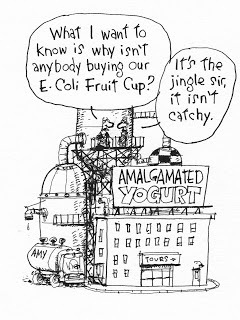 What I want to
know is why isn't
anybody buying our
E. Coli Fruit Cup?
It's the
jingle sir,
it isn't
catchy.
AMALGAMATED
YOGURT
AMY
TOURS